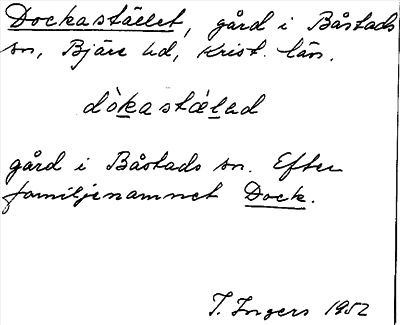 Dockastället, gård i Båstads
sn, Bjäre hd, Krist. län.
dòkastælad
gård i Båstads sn. Efter
familjenamnet Dock.
I. Ingers 1952